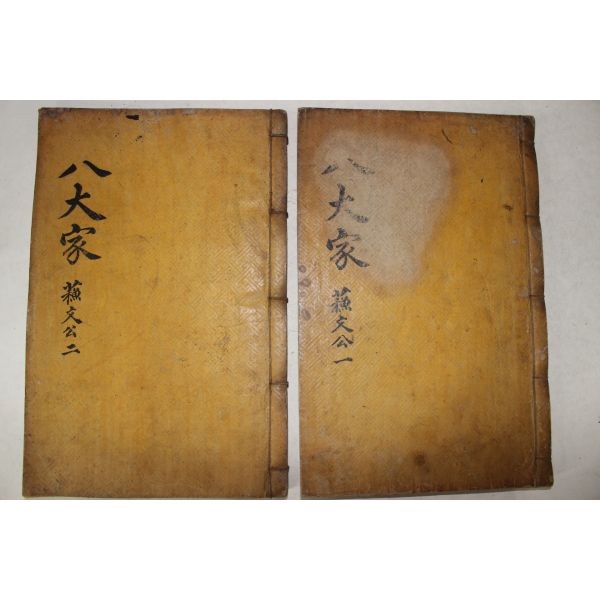 八大家
蘓文公二
八大家
蘓文公一